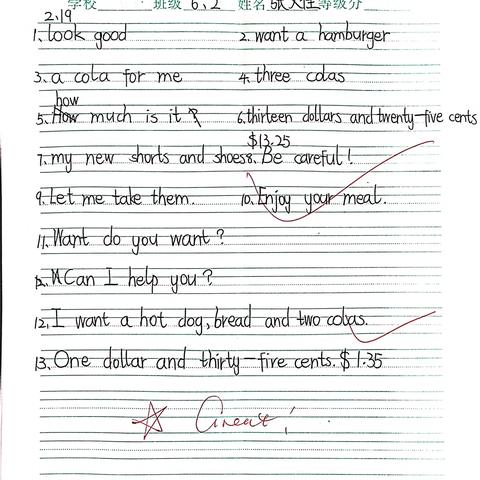 学校 班级 6.2 姓名 等级分
2.19
1. look good 2. want a hamburger
3. a cola for me 4. three colas
how
5. How much is it 6. thirteen dollars and twenty-five cents
$13.25
7. my new shorts and shoes 8. Be careful!
9. Let me take them. 10. Enjoy your meal.
11. Want do you want?
Can I help you?
12. I want a hot dog, bread and two colas.
13. One dollar and thirty-five cents. $1.35
☆ Great!